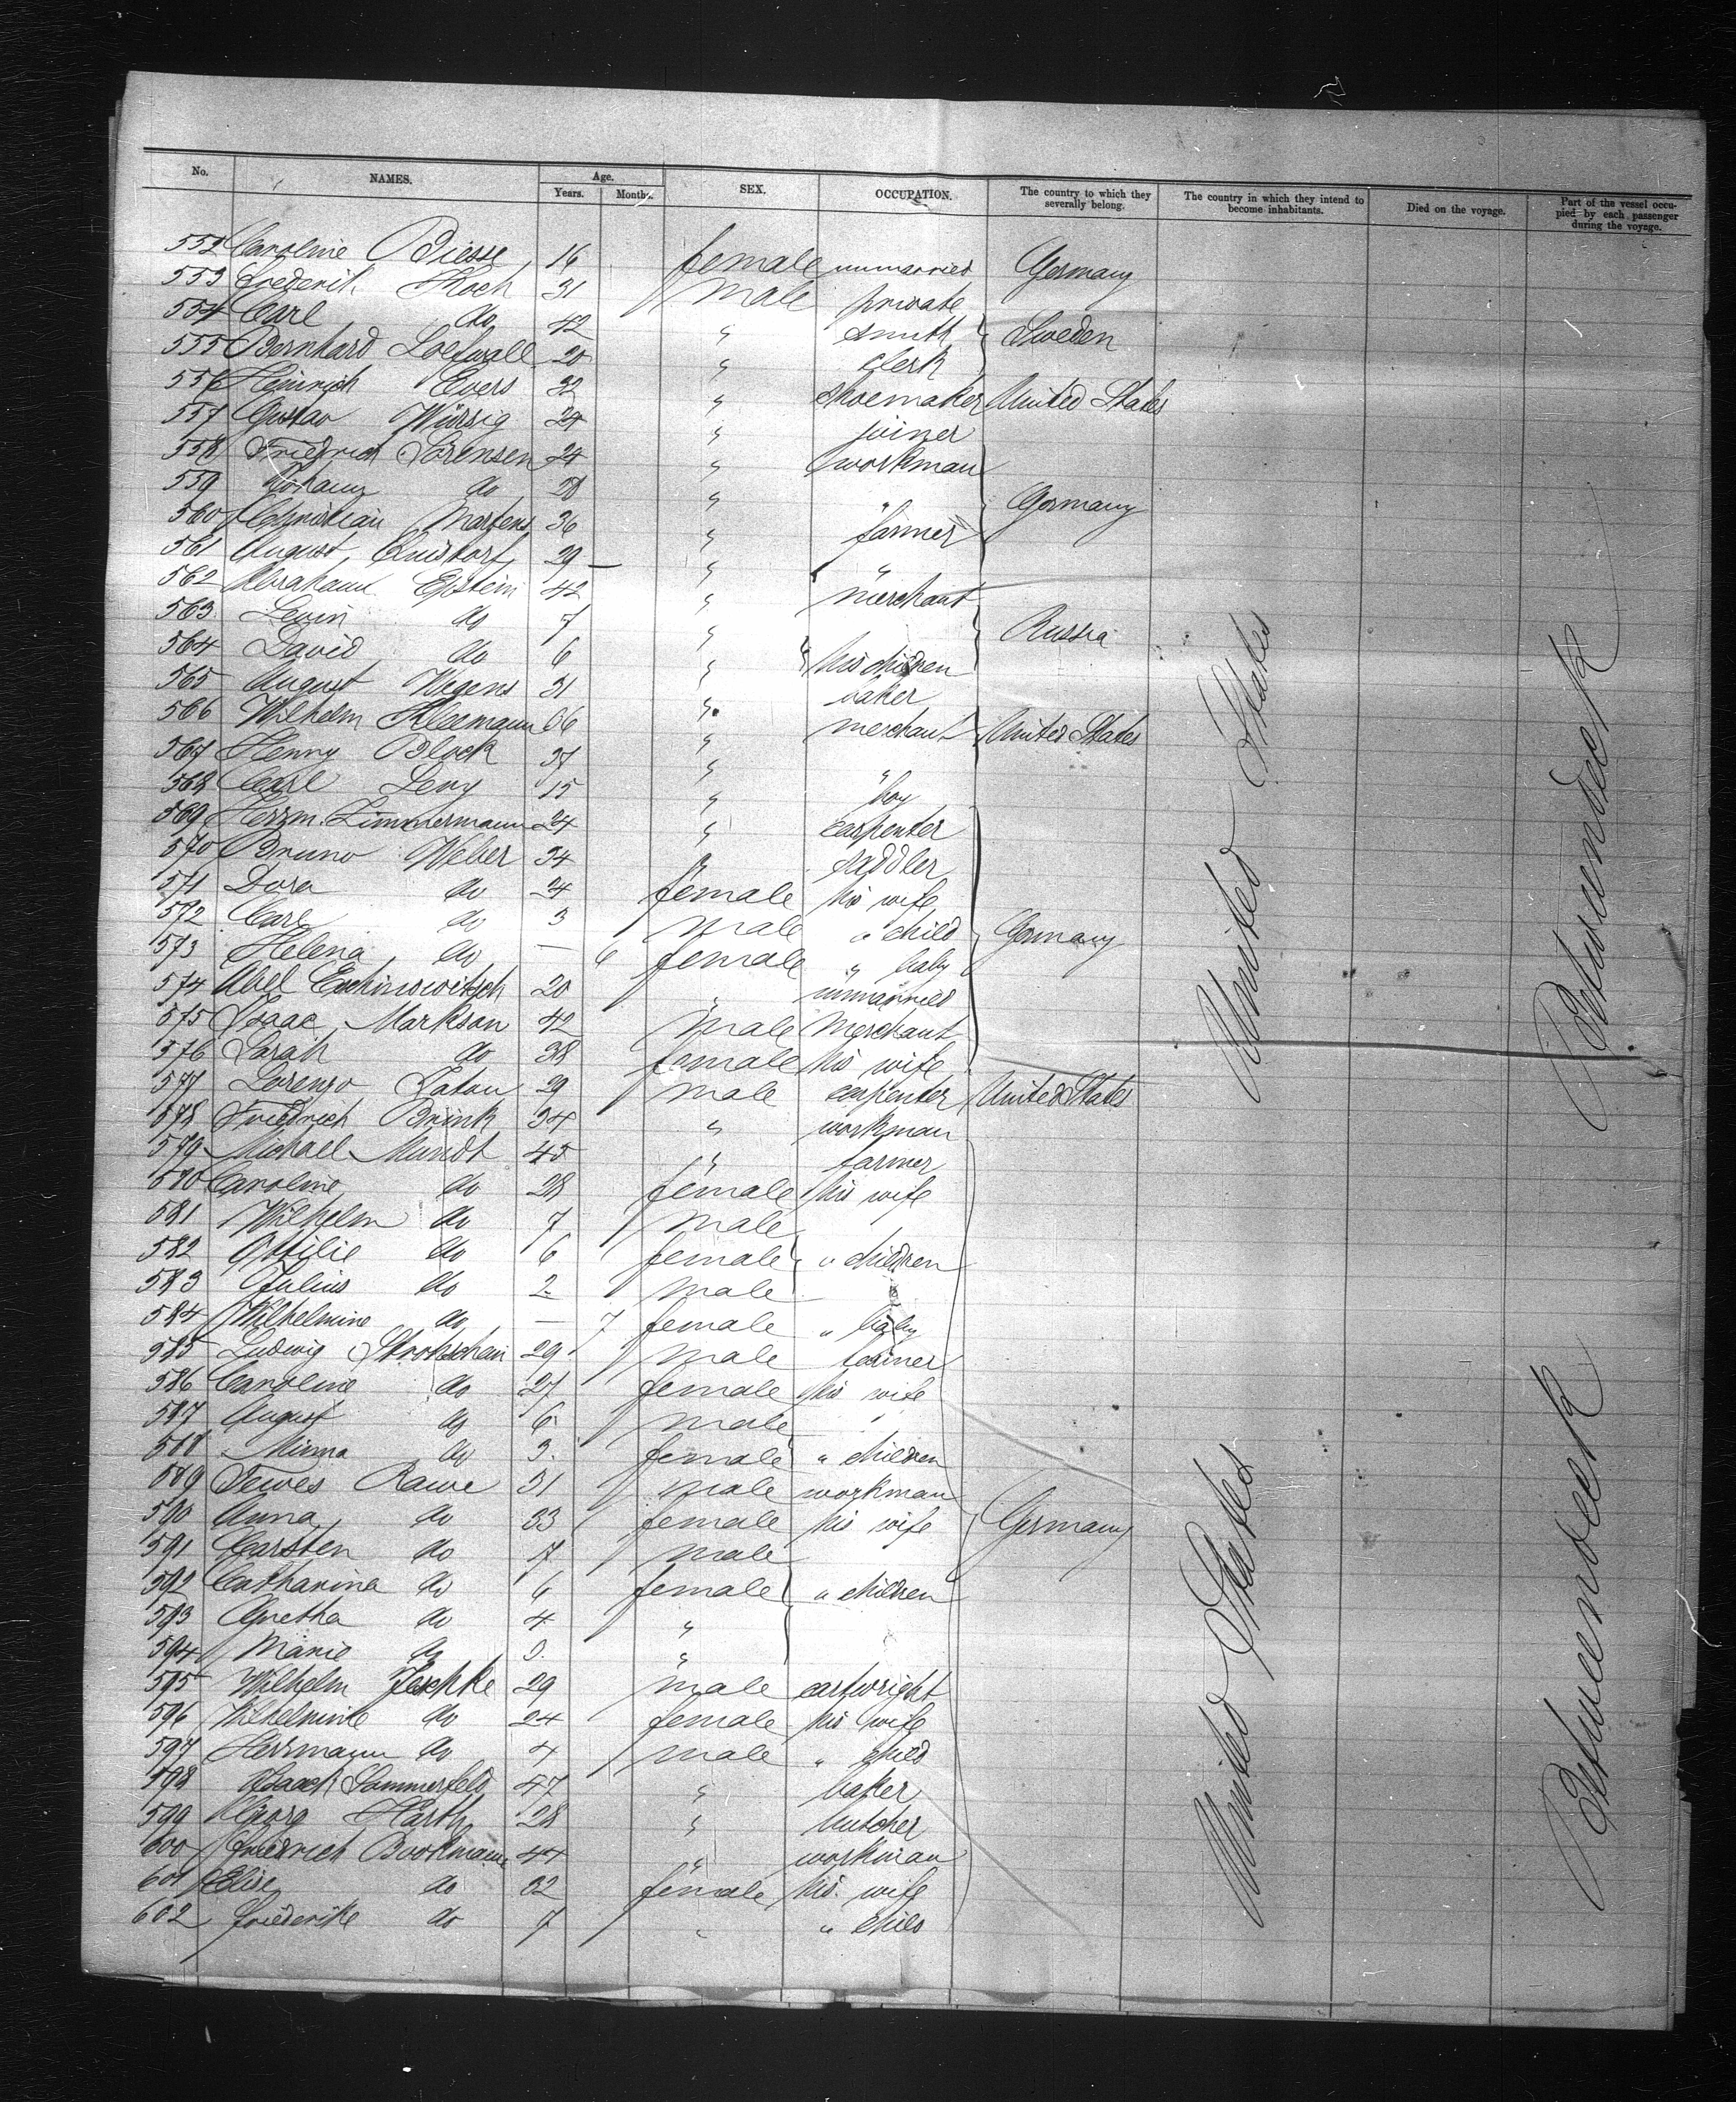 No. NAMES. Age. Years. Months. SEX. OCCUPATION. The country to which they severally belong. The country in which they intend to become inhabitants. Died on the voyage. Part of the vessel occupied by each passenger during the voyage.
552 Caroline Diesse 16 female unmarried Germany
553 Frederik Koch 31 male private
554 Carl do 42 " smith Sweden
555 Bernhard 20 " clerk
556 Heinrich Evers 32 " shoemaker United States
557 Gustav Würsig 24 " joiner
558 Friedrich Sörensen 24 " workman
559 Johann do 28 " " Germany
560 Christian Martens 36 " farmer
561 August Quistorf 29 — " "
562 Abraham Epstein 42 " merchant
563 Levin do 7 " Russia
564 David do 6 " his children
565 August Wegens 31 " baker
566 Wilhelm 66 " merchant United States
567 Henry Block 37 " "
568 Carl Levy 15 " boy
569 Herrm. Zimmermann 24 " carpenter
570 Bruno Weber 34 " saddler
571 Dora do 24 female his wife
572 Carl do 3 male " child Germany
573 Helena do — 6 female " baby
574 Abel 20 " unmarried
575 Isaac Markson 42 male merchant
576 Sarah do 38 female his wife
577 Lorenzo Eaton 29 male carpenter United States
578 Friedrich Brink 34 " workman
579 Michael Mundt 45 " farmer
580 Caroline do 28 female his wife
581 Wilhelm do 7 male
582 Ottilie do 6 female " children
583 Julius do 2 male
584 Wilhelmine do — 7 female " baby
585 Ludwig Strohschein 29 male farmer
586 Caroline do 27 female his wife
587 August do 6 male "
588 Minna do 3 female " children
589 Tewes Rawe 31 male workman
590 Anna do 33 female his wife Germany
591 Carsten do 7 male
592 Catharina do 6 female " children
593 Agnetha do 4 "
594 Marie do "
595 Wilhelm Jeschke 29 male cartwright
596 Wilhelmine do 24 female his wife
597 Herrmann do 4 male " child
598 Isaack Sommerfeld 47 " baker
599 Georg Harth 28 " butcher
600 Friedrich Bookmann 44 " workman
601 Elise do 32 female his wife
602 Friederike do 7 " " child
United States
United States
Betweendeck
Betweendeck